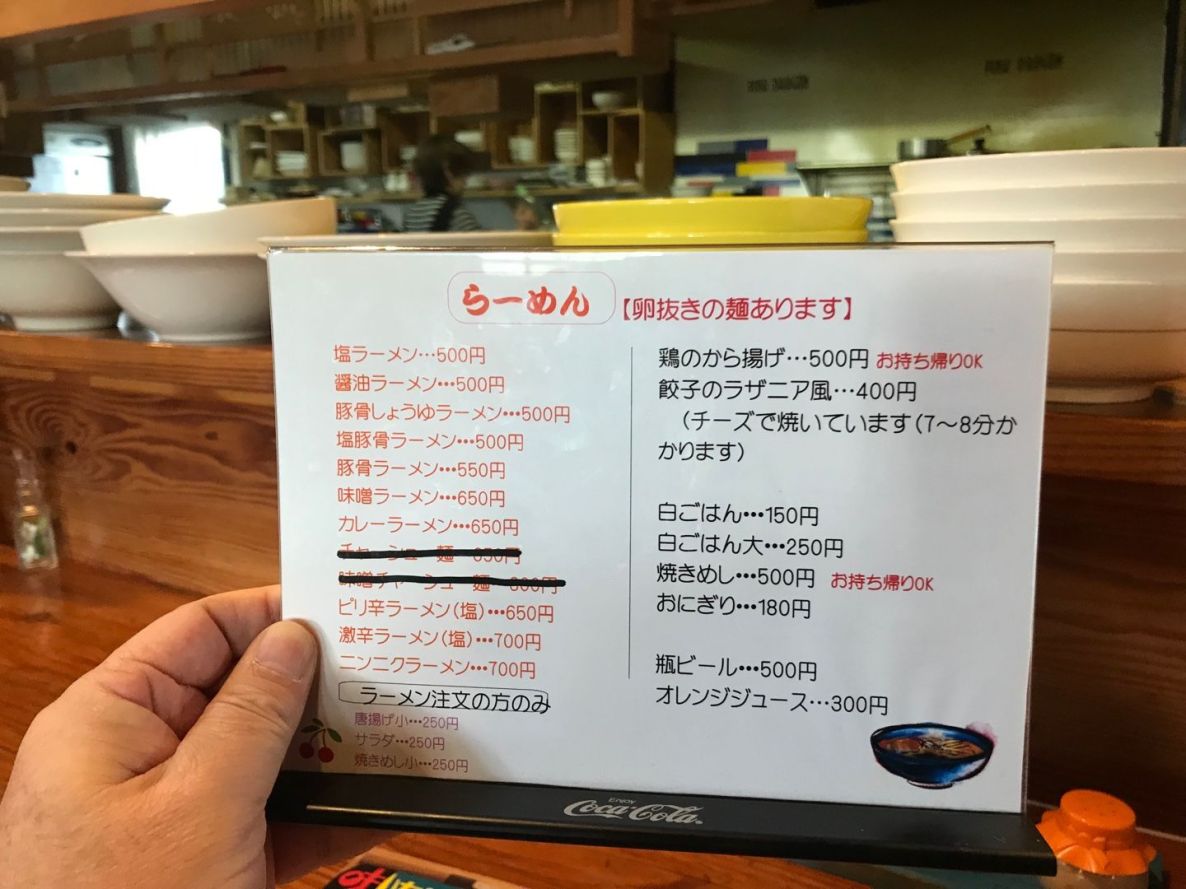 らーめん
【卵抜きの麺あります】
塩ラーメン…500円
醤油ラーメン…500円
豚骨しょうゆラーメン…500円
塩豚骨ラーメン…500円
豚骨ラーメン…550円
味噌ラーメン…650円
カレーラーメン…650円
ピリ辛ラーメン(塩)…650円
激辛ラーメン(塩)…700円
ニンニクラーメン…700円
ラーメン注文の方のみ
唐揚げ小…250円
サラダ…250円
焼きめし小…250円
鶏のから揚げ…500円 お持ち帰りOK
餃子のラザニア風…400円
(チーズで焼いています(7～8分か
かります)
白ごはん…150円
白ごはん大…250円
焼きめし…500円 お持ち帰りOK
おにぎり…180円
瓶ビール…500円
オレンジジュース…300円
ENJOY
Coca-Cola